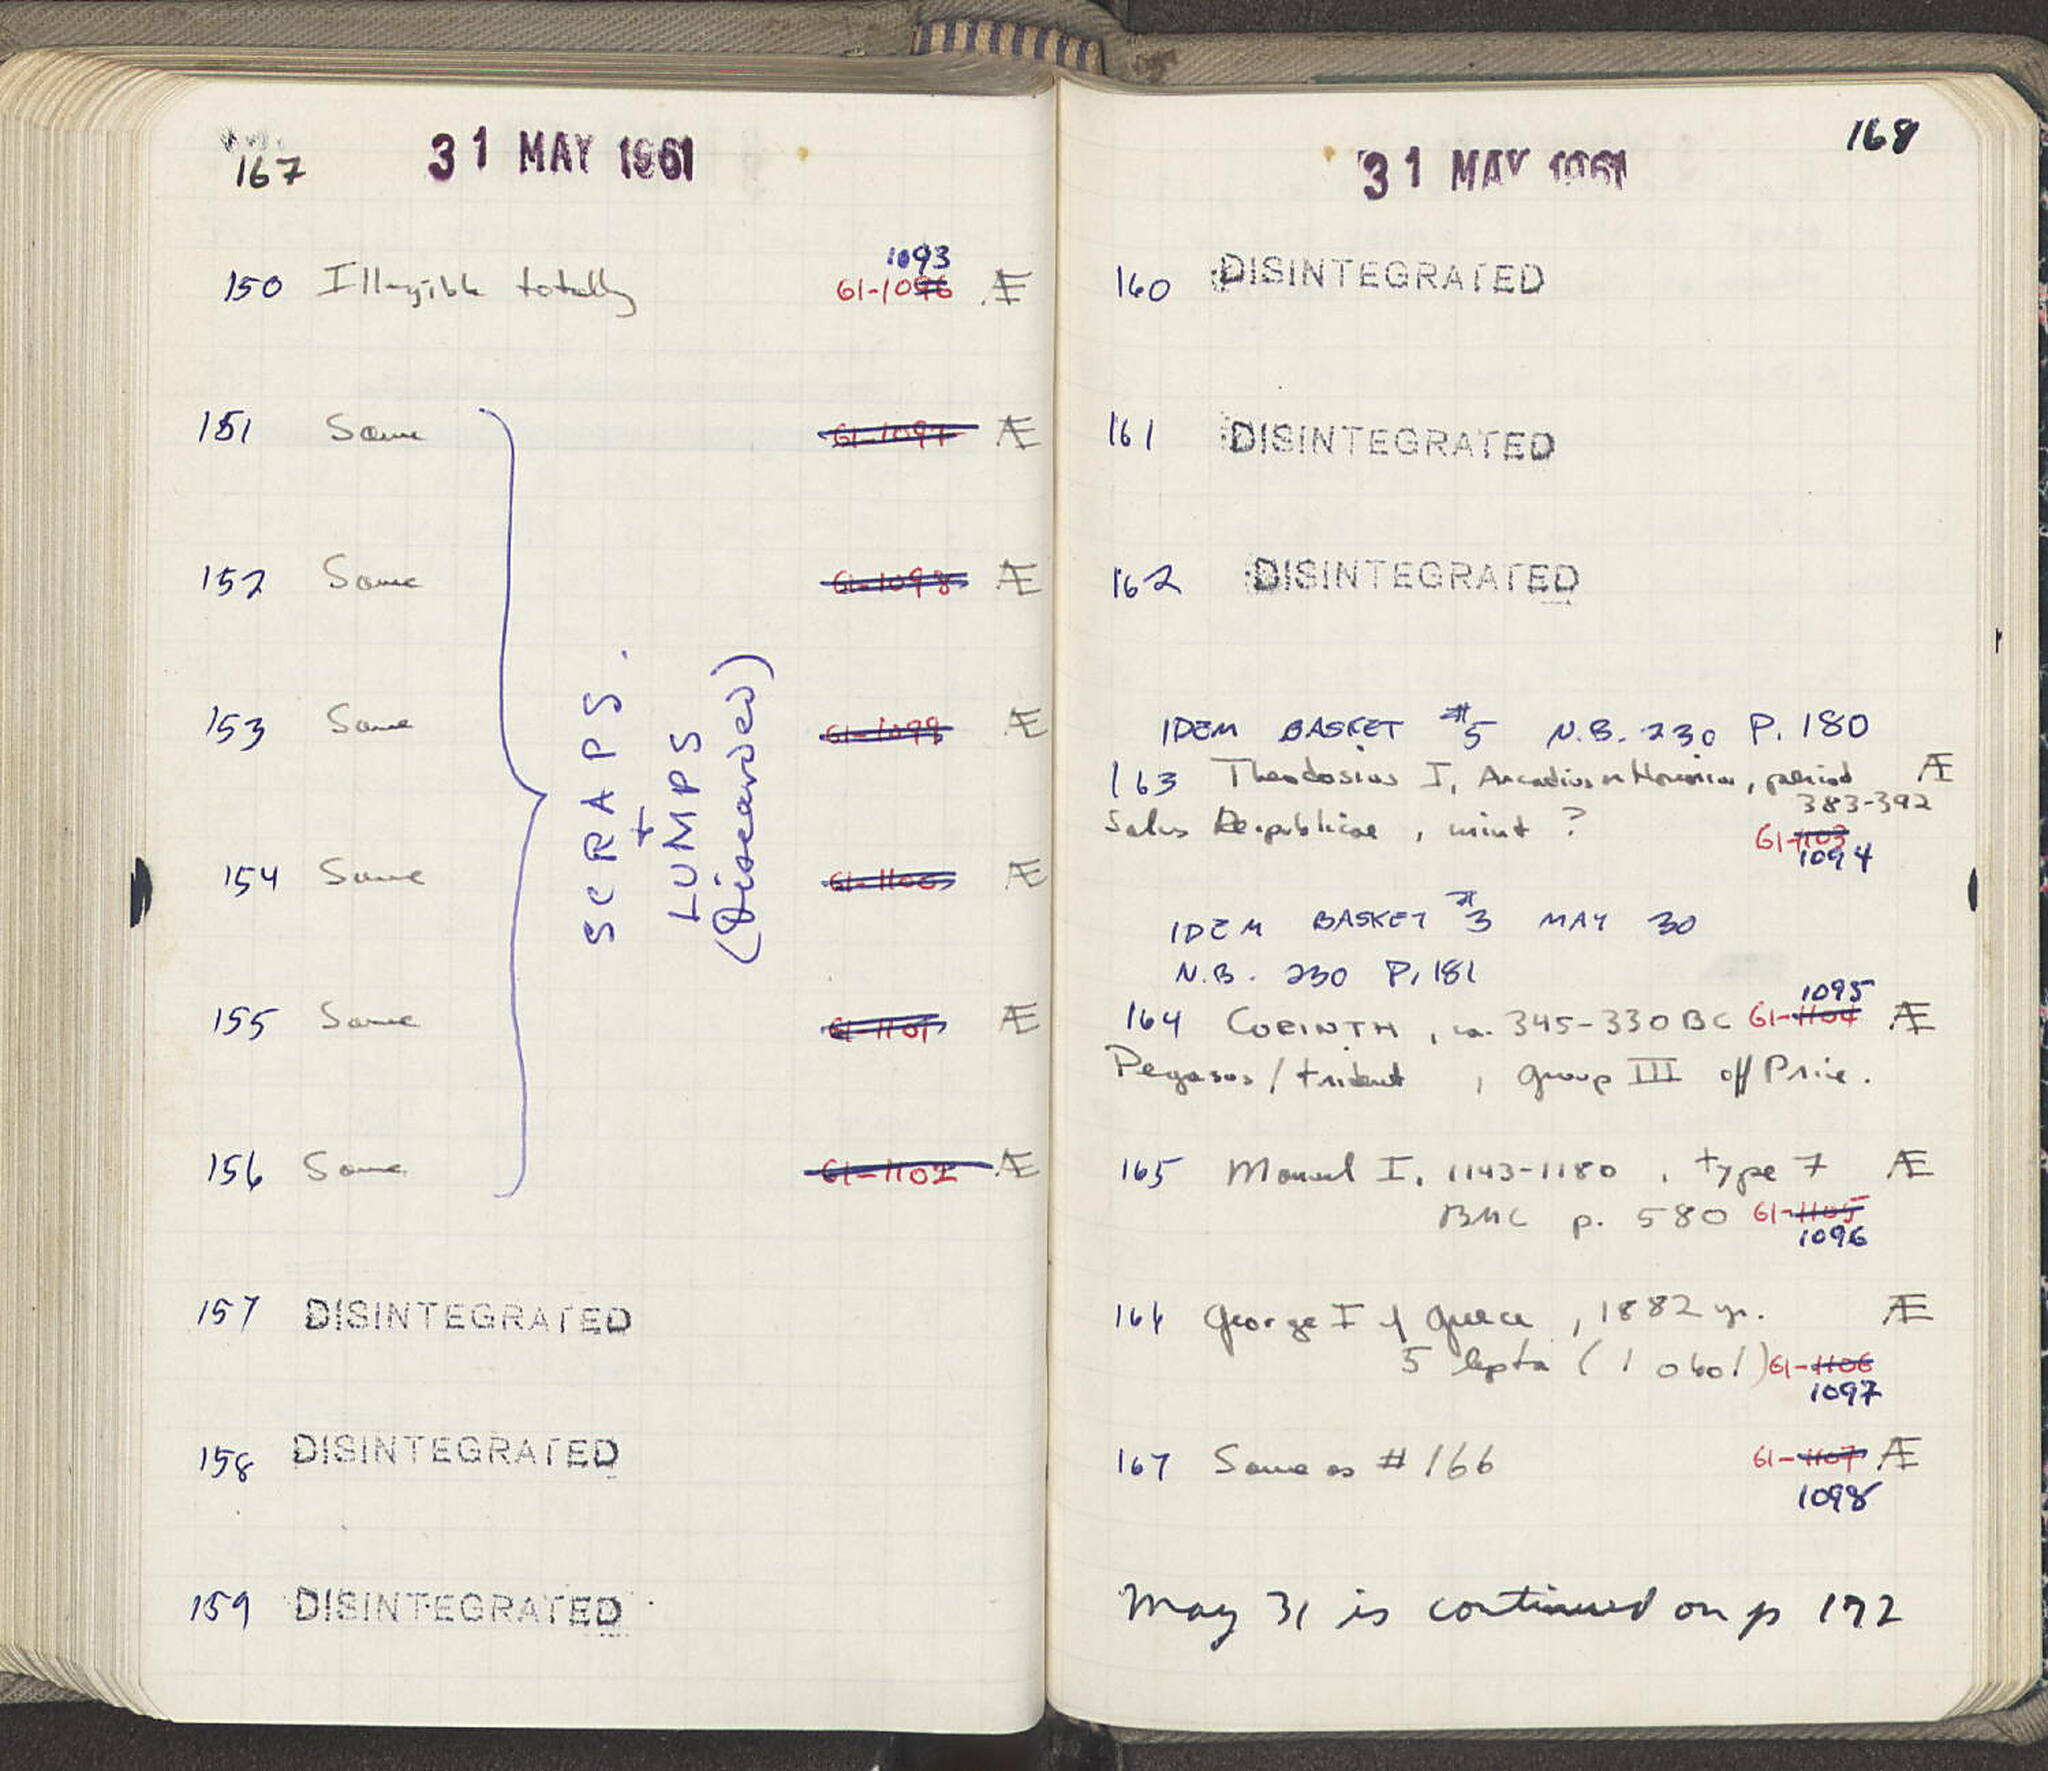 167
31 MAY 1961
1093
150 Illegible totally 61-1096 Æ
151 Same 61-1097 Æ
152 Same 61-1098 Æ
153 Same 61-1099 Æ
154 Same 61-1100 Æ
155 Same 61-1101 Æ
156 Same 61-1102 Æ
SCRAPS.
+
LUMPS
(Discarded)
157 DISINTEGRATED
158 DISINTEGRATED
159 DISINTEGRATED
168
31 MAY 1961
160 DISINTEGRATED
161 DISINTEGRATED
162 DISINTEGRATED
IDEM BASKET #5 N.B. 230 P. 180
163 Theodosius I, Arcadius or Honorius, period Æ
383-392
Salus Reipublicae, mint ? 61-1103
1094
IDEM BASKET #3 MAY 30
N.B. 230 P. 181
1095
164 CORINTH, ca. 345-330 BC 61-1104 Æ
Pegasos/trident, group III of Price.
165 Manuel I, 1143-1180, type 7 Æ
BMC p. 580 61-1105
1096
166 George I of Greece, 1882 yr. Æ
5 lepta (1 obol) 61-1106
1097
167 Same as #166 61-1107 Æ
1098
May 31 is continued on p 172